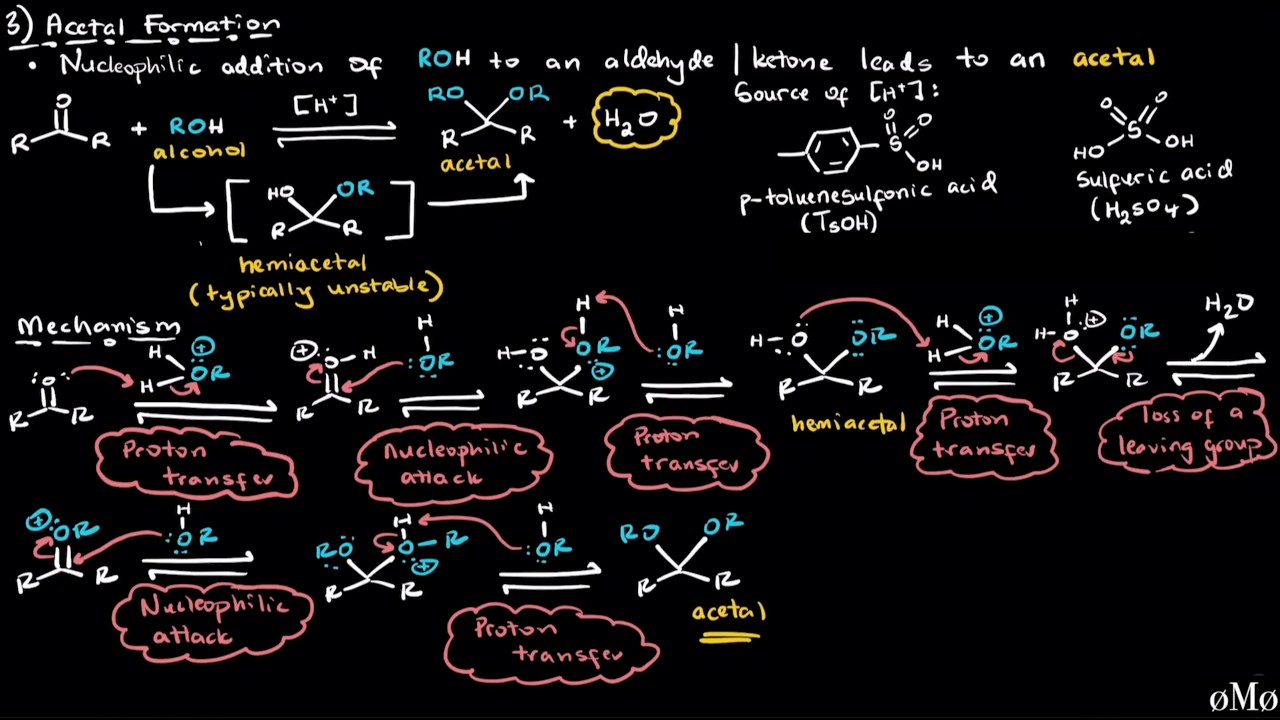 3) Acetal Formation
• Nucleophilic addition of ROH to an aldehyde | ketone leads to an acetal
Source of [H+]:
O
R R + ROH [H+] RO OR R R + H2O
alcohol
acetal
HO OR
R R
hemiacetal
(typically unstable)
O O
S
OH
p-toluenesulfonic acid
(TsOH)
O O
S
HO OH
sulfuric acid
(H2SO4)
Mechanism
:O: R R
H H OR +
Proton
transfer
+ O H R R
H :OR
Nucleophilic
attack
H-O H OR + R R
H :OR
Proton
transfer
H-O OR R R
hemiacetal
H H OR +
Proton
transfer
H H-O + OR R R
H2O
loss of a
leaving group
+ :OR R R
H :OR
Nucleophilic
attack
RO H O-R + R
H :OR
Proton
transfer
RO OR
R R
acetal
øMø